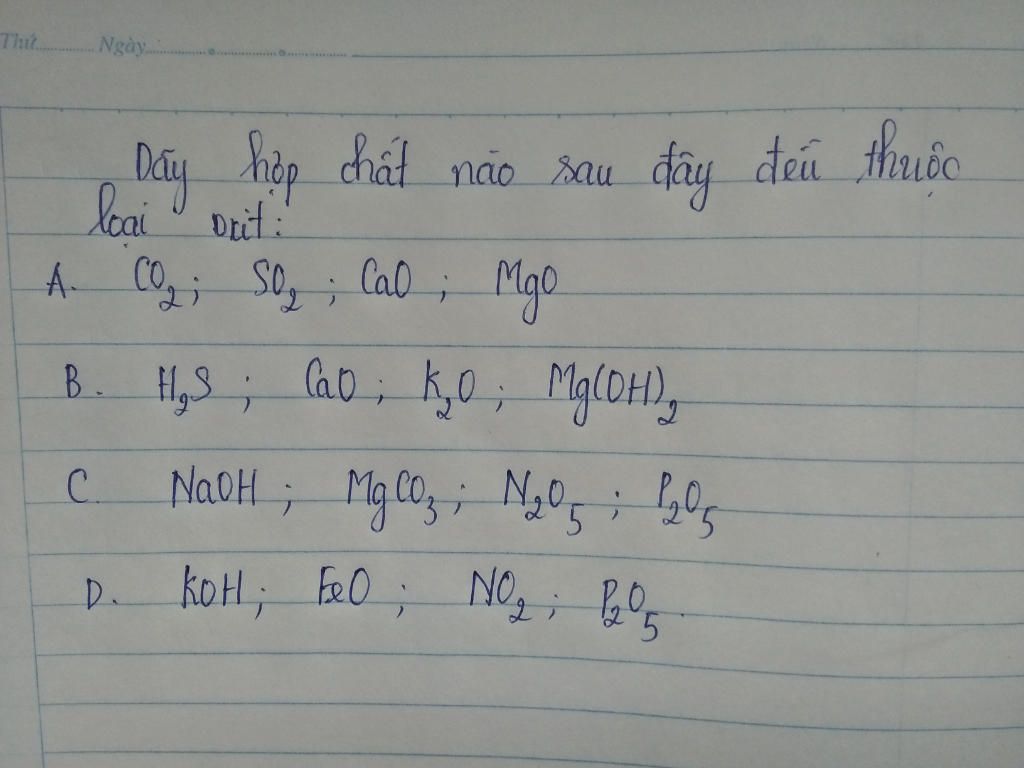 Thứ............ Ngày............
Dãy hợp chất nào sau đây đều thuộc
loại oxit:
A. CO₂; SO₂; CaO; MgO
B. H₂S; CaO; K₂O; Mg(OH)₂
C. NaOH; MgCO₃; N₂O₅; P₂O₅
D. KOH; FeO; NO₂; P₂O₅.